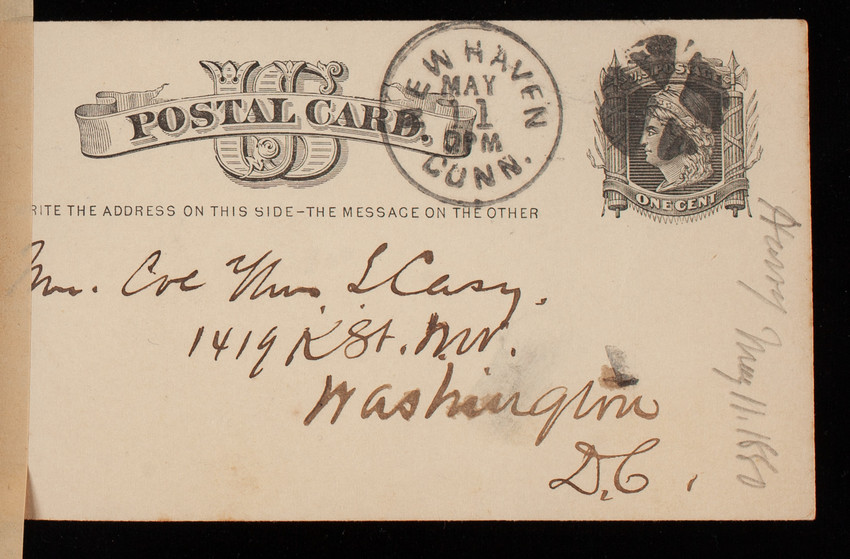 US
POSTAL CARD.
NEW HAVEN
MAY
11
PM
CONN.
U.S. POSTAGE
ONE CENT
RITE THE ADDRESS ON THIS SIDE–THE MESSAGE ON THE OTHER
Mr. Coe Thos L Casy.
1419 K St. N.W.
Washington
D.C.
May 11, 1880